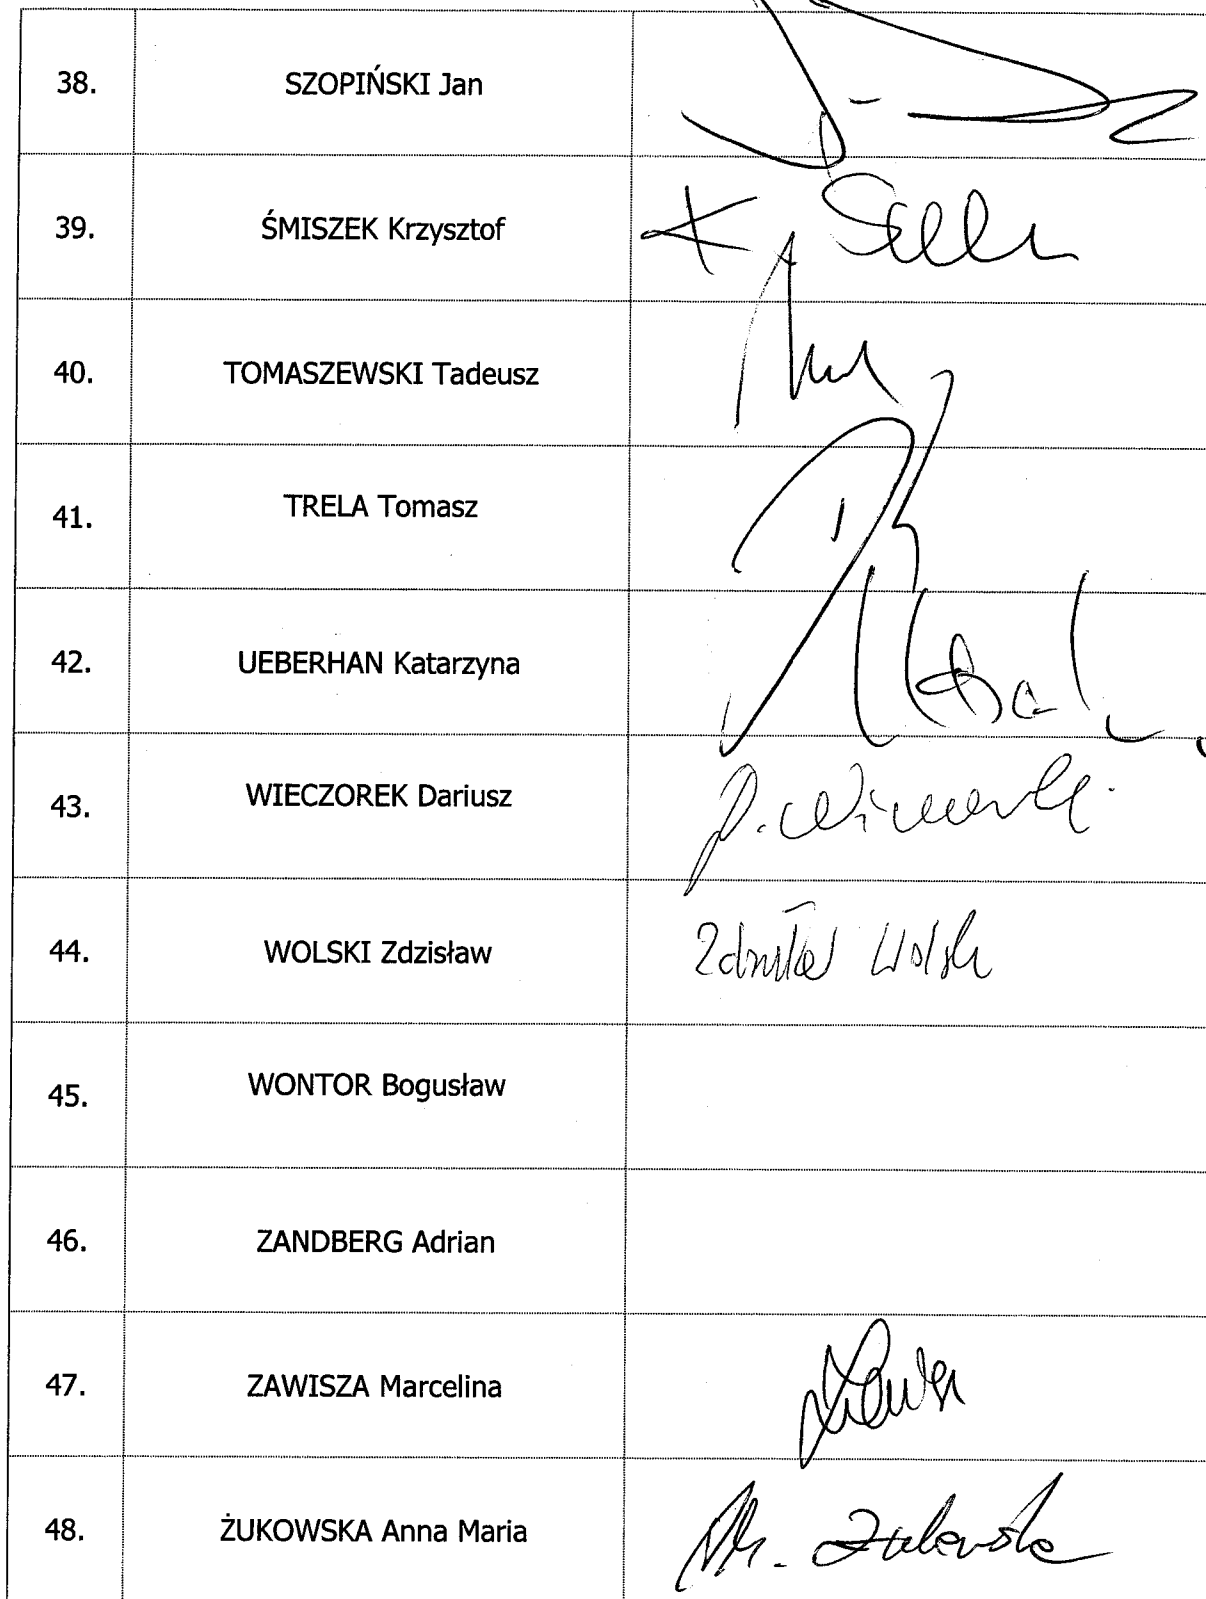 38. SZOPIŃSKI Jan
39. ŚMISZEK Krzysztof
40. TOMASZEWSKI Tadeusz
41. TRELA Tomasz
42. UEBERHAN Katarzyna
43. WIECZOREK Dariusz
44. WOLSKI Zdzisław Zdzisław Wolski
45. WONTOR Bogusław
46. ZANDBERG Adrian
47. ZAWISZA Marcelina
48. ŻUKOWSKA Anna Maria